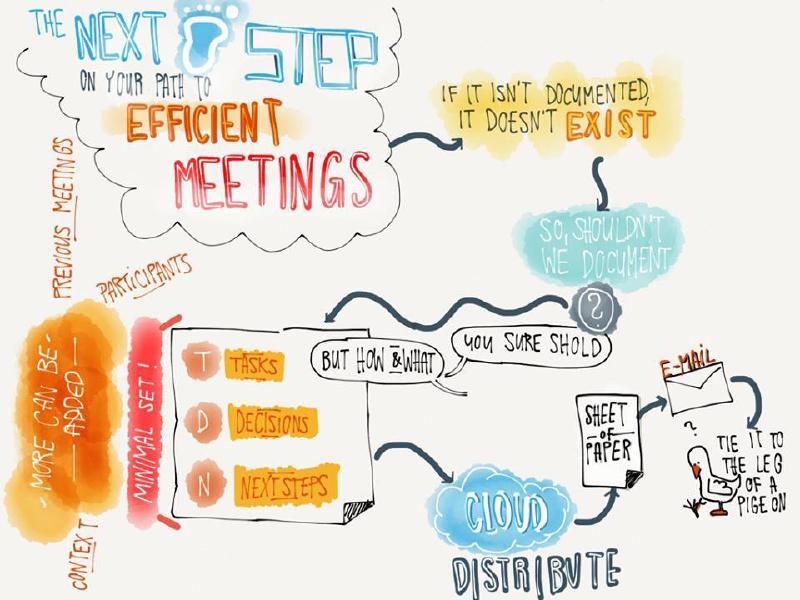 THE NEXT STEP
ON YOUR PATH TO
EFFICIENT
MEETINGS
IF IT ISN'T DOCUMENTED,
IT DOESN'T EXIST
SO, SHOULDN'T
WE DOCUMENT
?
YOU SURE SHOLD
BUT HOW & WHAT
PREVIOUS MEETINGS
PARTICIPANTS
- MORE CAN BE -
ADDED
CONTEXT
MINIMAL SET!
T TASKS
D DECISIONS
N NEXT STEPS
CLOUD
DISTRIBUTE
SHEET
OF
PAPER
E-MAIL
?
TIE IT TO
THE LEG
OF A
PIGEON